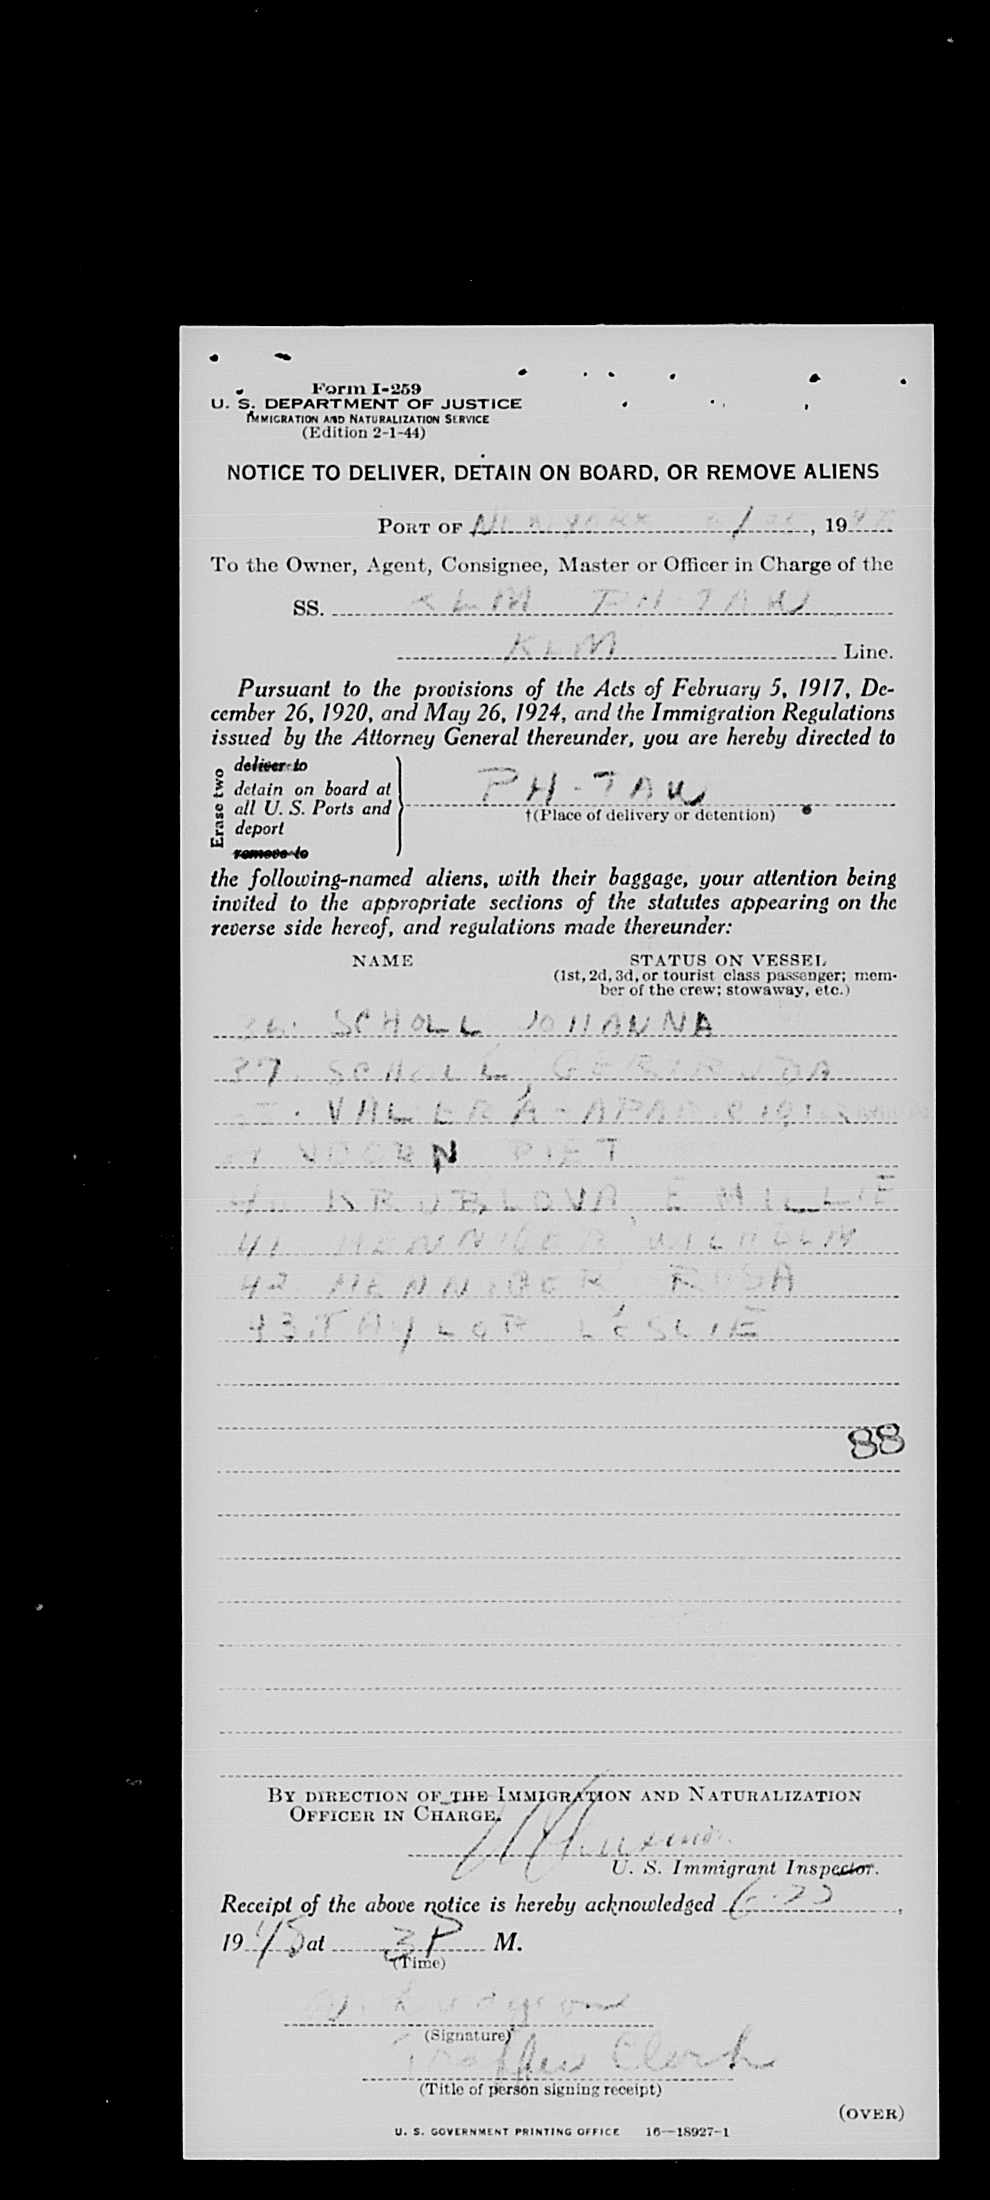 Form I-259
U. S. DEPARTMENT OF JUSTICE
IMMIGRATION AND NATURALIZATION SERVICE
(Edition 2-1-44)
NOTICE TO DELIVER, DETAIN ON BOARD, OR REMOVE ALIENS
PORT OF NEW YORK , 19
To the Owner, Agent, Consignee, Master or Officer in Charge of the
SS. KLM PH-TAW
KLM Line.
Pursuant to the provisions of the Acts of February 5, 1917, De-
cember 26, 1920, and May 26, 1924, and the Immigration Regulations
issued by the Attorney General thereunder, you are hereby directed to
Erase two
deliver to
detain on board at
all U. S. Ports and
deport
remove to
PH-TAW
†(Place of delivery or detention)
the following-named aliens, with their baggage, your attention being
invited to the appropriate sections of the statutes appearing on the
reverse side hereof, and regulations made thereunder:
NAME STATUS ON VESSEL
(1st, 2d, 3d, or tourist class passenger; mem-
ber of the crew; stowaway, etc.)
36. SCHOLL JOHANNA
37. SCHOLL,
VALERA-
VOORN PIET
40 KRUBLOVA, EMILLIE
41 WILHELM
42 ROSA
43. TAYLOR LESLIE
88
BY DIRECTION OF THE IMMIGRATION AND NATURALIZATION
OFFICER IN CHARGE.
U. S. Immigrant Inspector.
Receipt of the above notice is hereby acknowledged 6-25 ,
1948 at 3 P M.
(Time)
(Signature)
Traffic Clerk
(Title of person signing receipt)
(OVER)
U. S. GOVERNMENT PRINTING OFFICE 16—18927-1